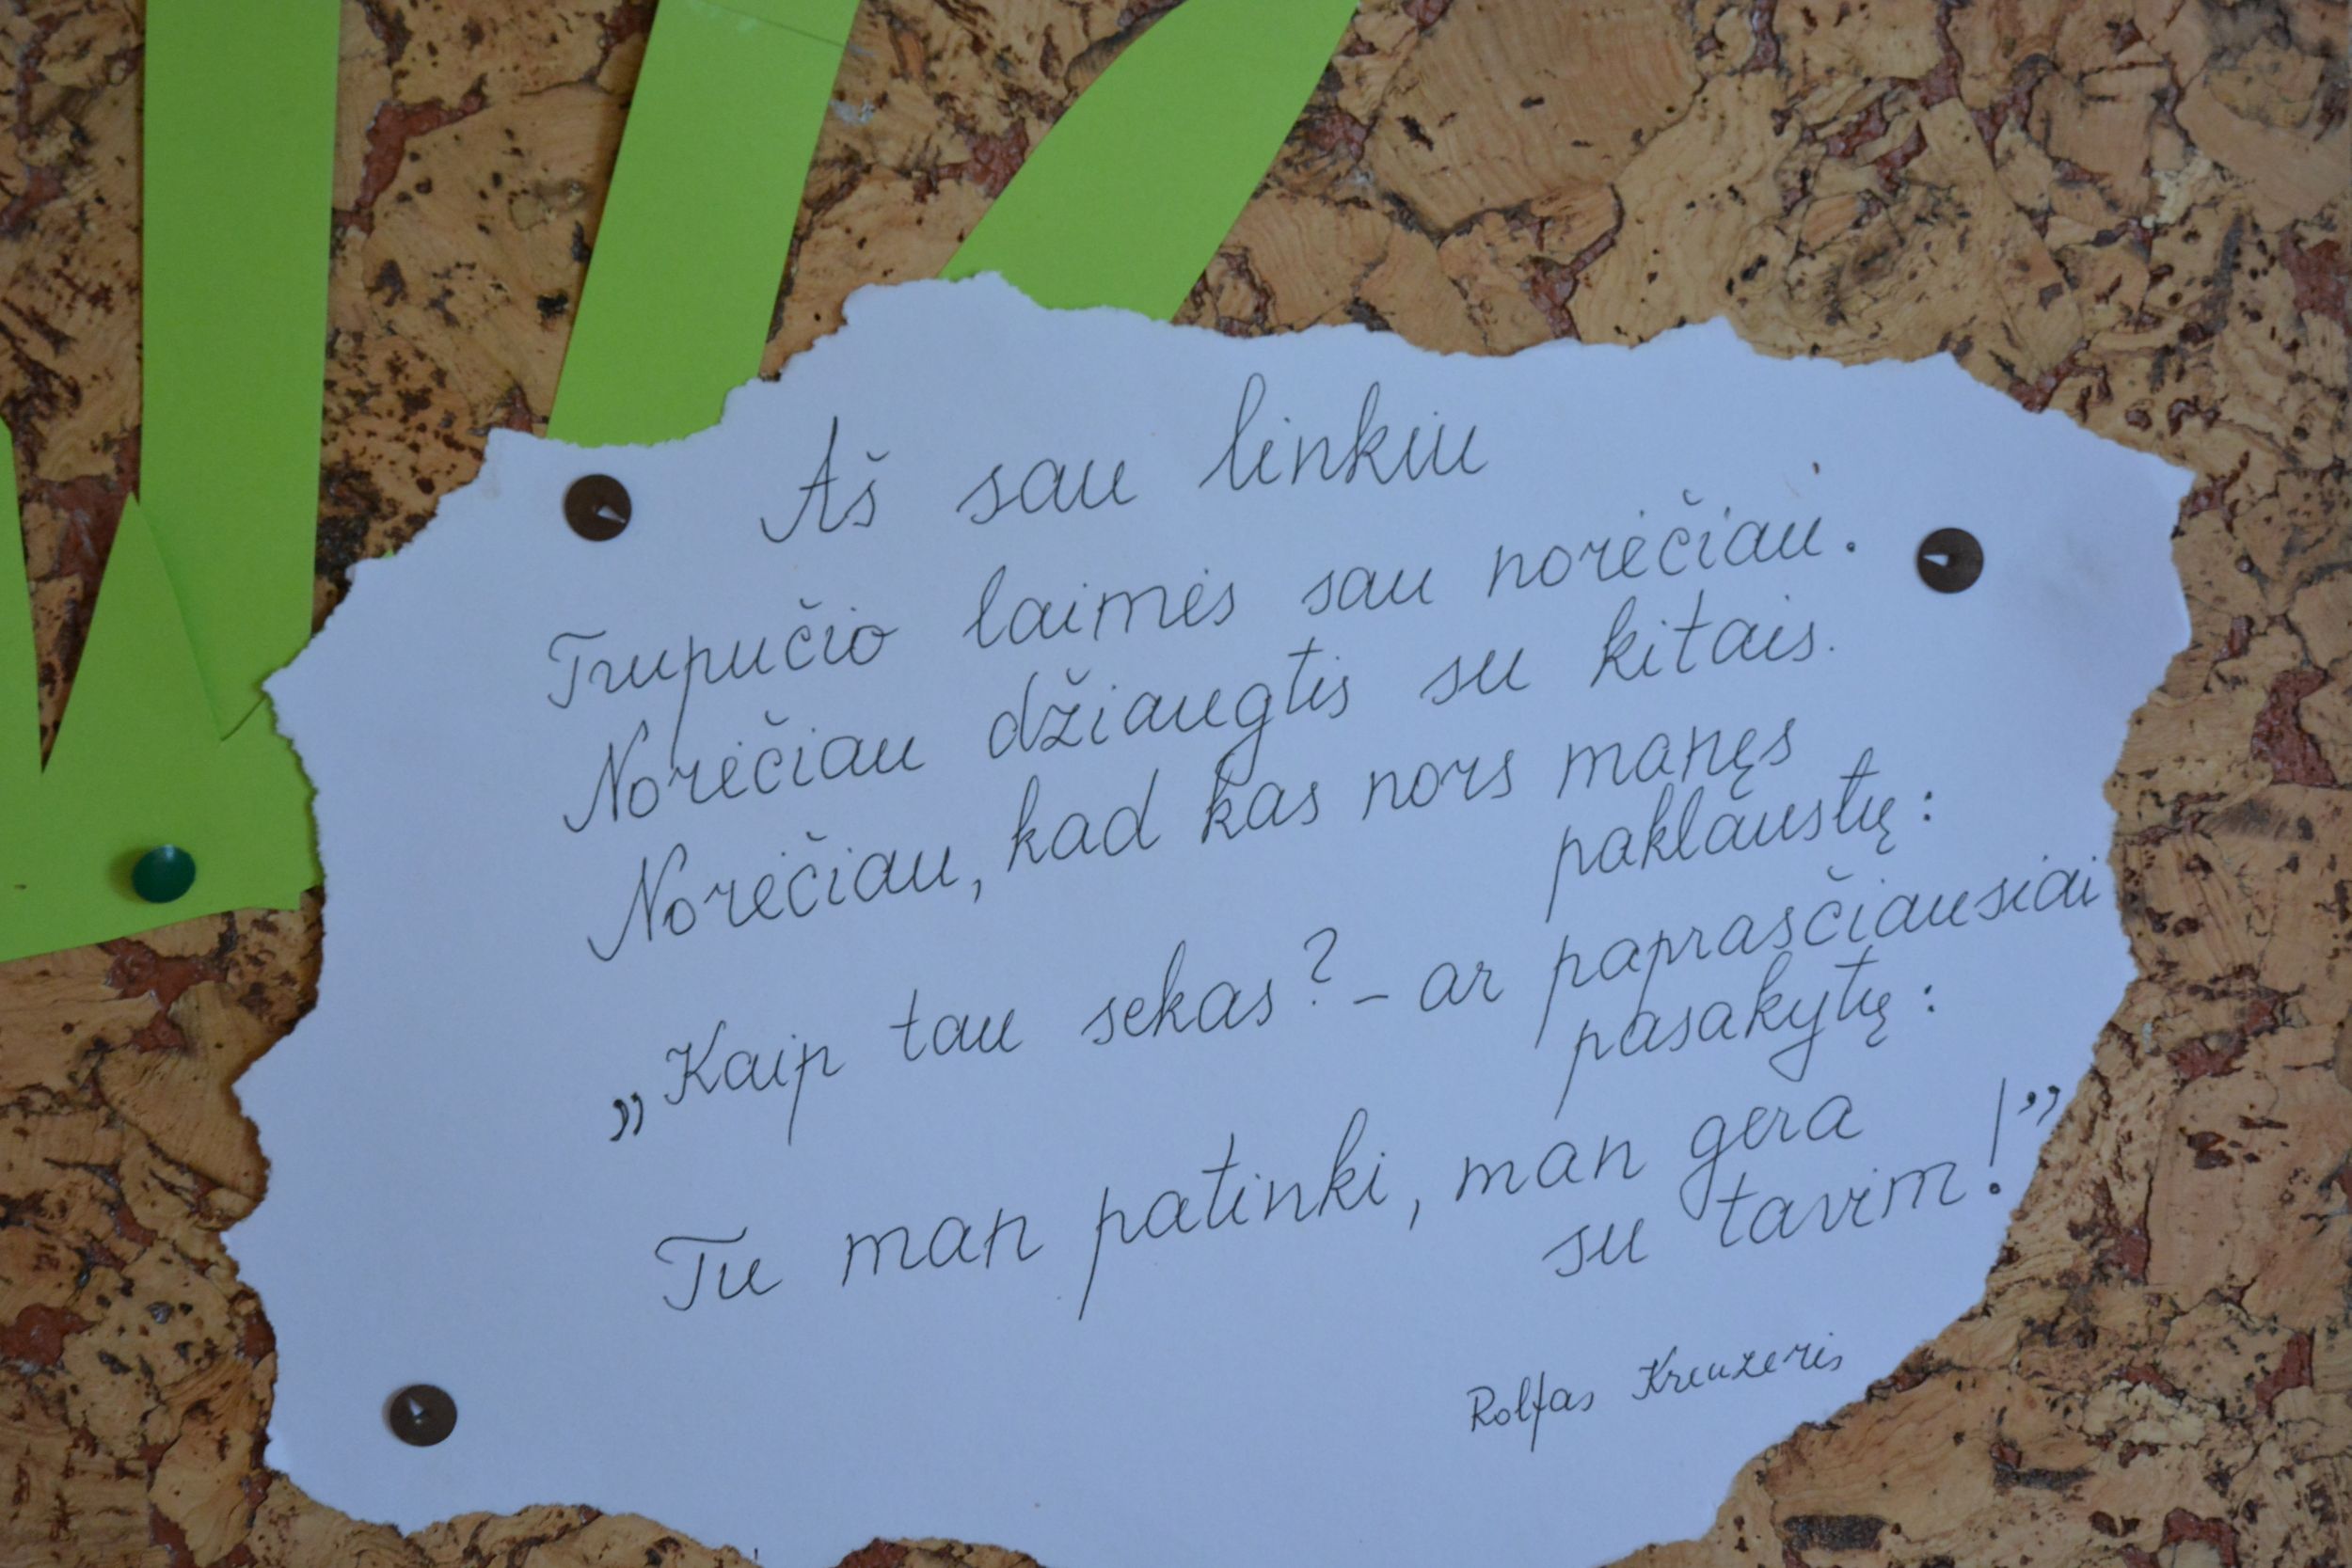 Aš sau linkiu
Trupučio laimės sau norėčiau.
Norėčiau džiaugtis su kitais.
Norėčiau, kad kas nors manęs
paklaustų:
„Kaip tau sekas? – ar paprasčiausiai
pasakytų:
Tu man patinki, man gera
su tavim!”
Rolfas Kreuzeris